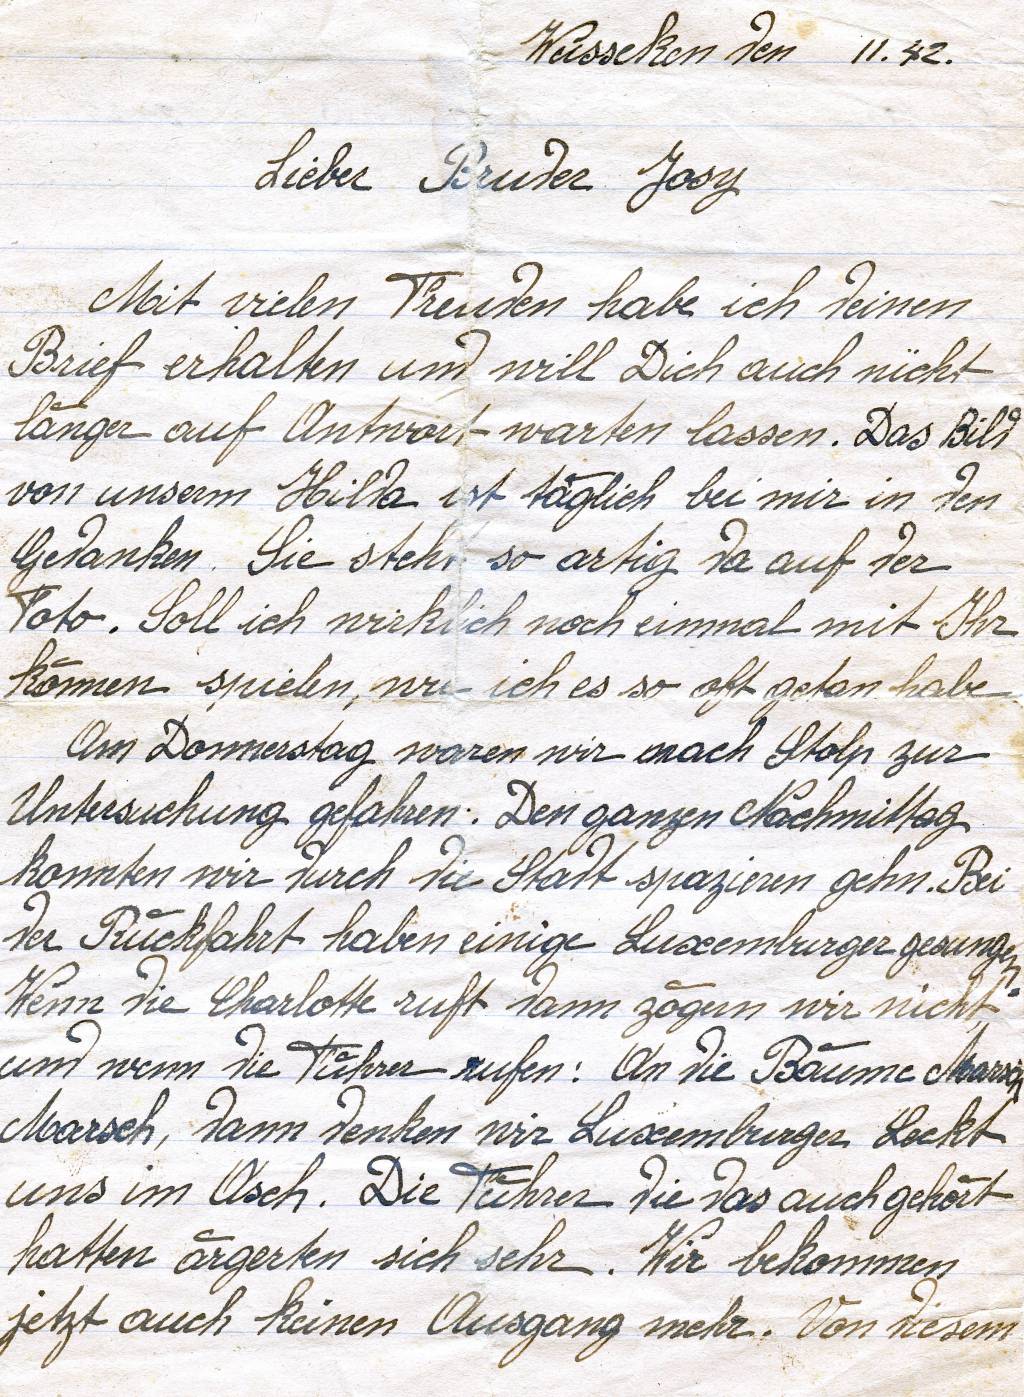 Wusseken den 11.42.
Lieber Bruder Josy
Mit vielen Freuden habe ich deinen
Brief erhalten und will Dich auch nicht
länger auf Antwort warten lassen. Das Bild
von unserm Hilda ist täglich bei mir in den
Gedanken. Sie steht so artig da auf der
Foto. Soll ich wirklich noch einmal mit Ihr
können spielen, wie ich es so oft getan habe
Am Donnerstag waren wir nach Stolp zur
Untersuchung gefahren. Den ganzen Nachmittag
konnten wir durch die Stadt spazieren gehn. Bei
der Rückfahrt haben einige Luxemburger gesungen
Wenn die Charlotte ruft dann zögern wir nicht
und wenn die Führer rufen: An die Bäume Marsch
Marsch, dann denken wir Luxemburger Leckt
uns im Asch. Die Führer die das auch gehört
hatten ärgerten sich sehr. Wir bekommen
jetzt auch keinen Ausgang mehr. Von diesem